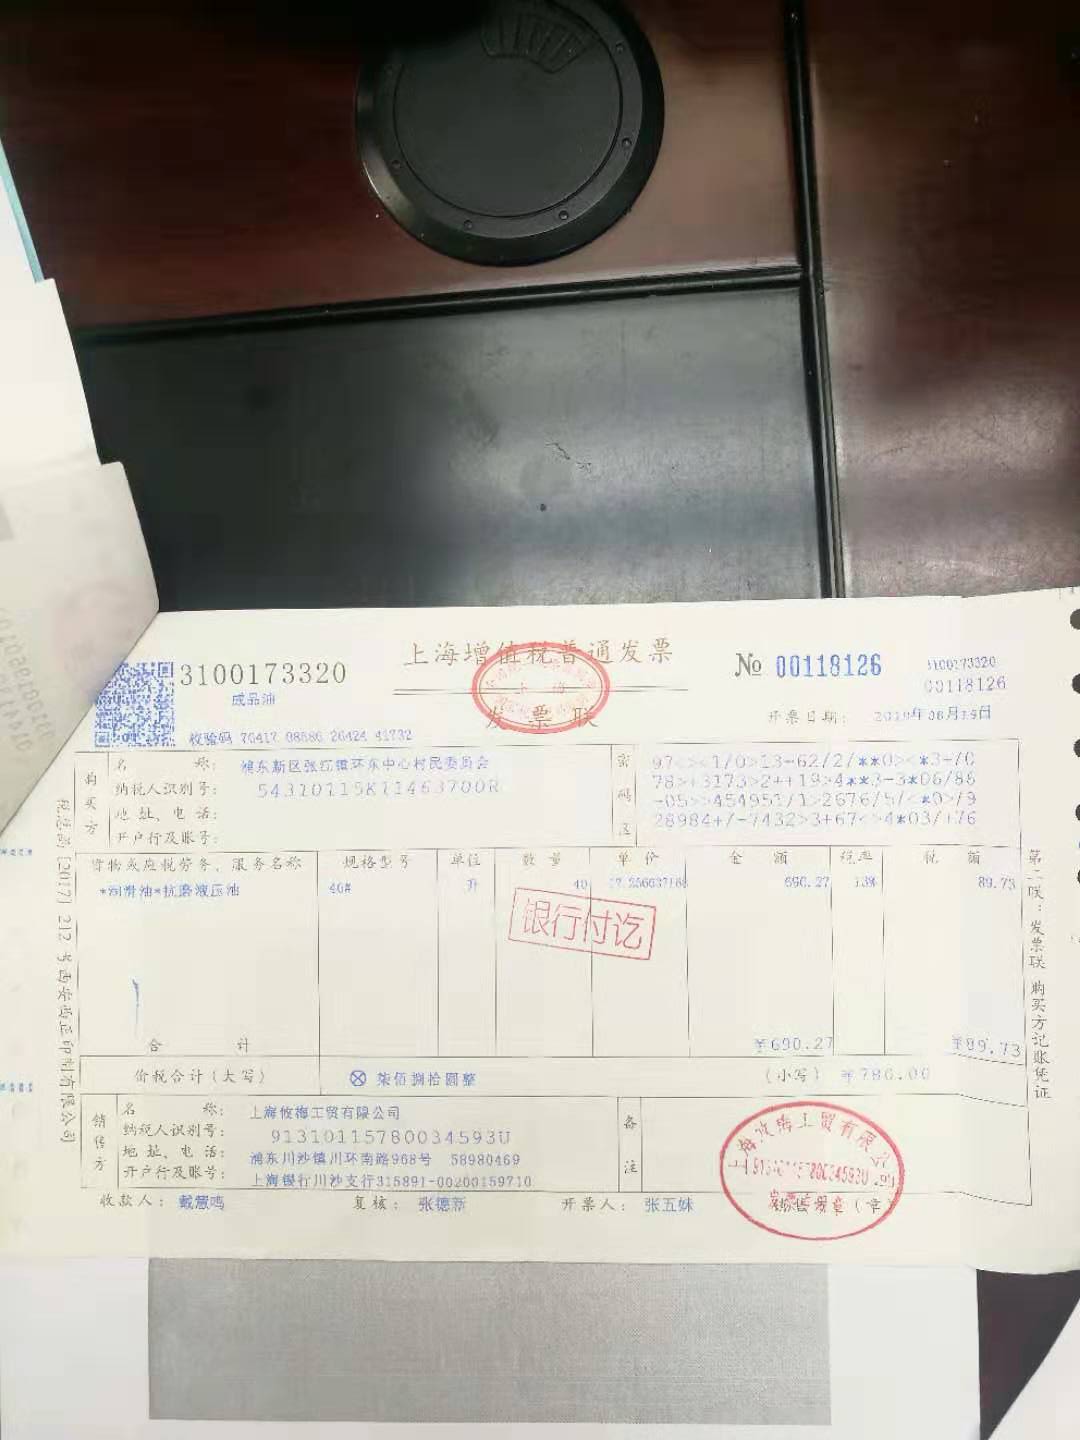 上海增值税普通发票
发票联
3100173320
成品油
№ 00118126
3100173320
00118126
校验码 70417 08586 26424 41732
开票日期: 2019年08月19日
购买方
名称: 浦东新区张江镇环东中心村民委员会
纳税人识别号: 54310115K11463700R
地址、电话:
开户行及账号:
密码区
97<><1/0>13-62/2/**0><*3+/0
78>+3173>2++19>4**3-3*06/86
-05>>454951/1>2676/5/<*0>/9
28984+/-7432>3+67<>4*03/+76
货物或应税劳务、服务名称 规格型号 单位 数量 单价 金额 税率 税额
*润滑油*抗磨液压油 40# 升 40 17.256637168 690.27 13% 89.73
银行付讫
合计 ¥690.27 ¥89.73
价税合计(大写) ⊗ 柒佰捌拾圆整 (小写) ¥780.00
销售方
名称: 上海攸梅工贸有限公司
纳税人识别号: 91310115780034593U
地址、电话: 浦东川沙镇川环南路968号 58980469
开户行及账号: 上海银行川沙支行315891-00200159710
备注
收款人: 戴慧鸣 复核: 张德新 开票人: 张五妹 (章)
上海攸梅工贸有限公司
91310115780034593U
发票专用章
第二联:发票联 购买方记账凭证